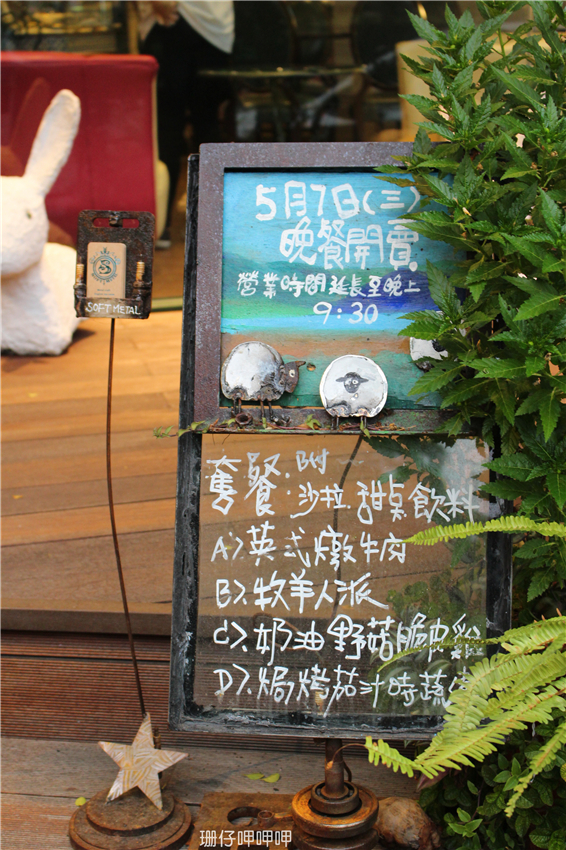 5月7日(三)
晚餐開賣
營業時間延長至晚上
9:30
S
SOFT METAL
套餐.附
沙拉.甜桌飲料
A)英式燉牛肉
B)牧羊人派
C)奶油野菇脆皮
D)焗烤茄汁時蔬
珊仔呷呷呷